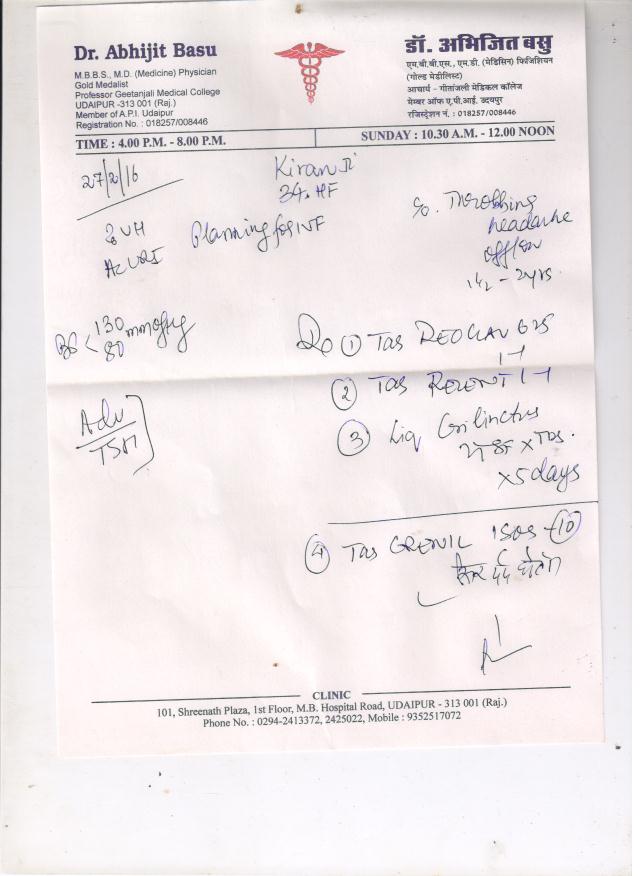 Dr. Abhijit Basu
M.B.B.S., M.D. (Medicine) Physician
Gold Medalist
Professor Geetanjali Medical College
UDAIPUR -313 001 (Raj.)
Member of A.P.I. Udaipur
Registration No. : 018257/008446
डॉ. अभिजित बसु
एम.बी.बी.एस., एम.डी. (मेडिसिन) फिजिशियन
(गोल्ड मेडीलिस्ट)
आचार्य - गीतांजली मेडिकल कॉलेज
मेम्बर ऑफ ए.पी.आई. उदयपुर
रजिस्ट्रेशन नं. : 018257/008446
TIME : 4.00 P.M. - 8.00 P.M.
SUNDAY : 10.30 A.M. - 12.00 NOON
27/2/16
Kiran Ji
34.
c/o. Throbbing
headache
off/on
1½ - 2yrs.
Planning for IVF
AcURI
130 mmofHg
80
① Tab 625
1-1
② Tab 1-1
③ Liq Grilinctus
SF x TDS.
x5 days
Adv
TSH
④ Tab -⑩
सिर दर्द
CLINIC
101, Shreenath Plaza, 1st Floor, M.B. Hospital Road, UDAIPUR - 313 001 (Raj.)
Phone No. : 0294-2413372, 2425022, Mobile : 9352517072